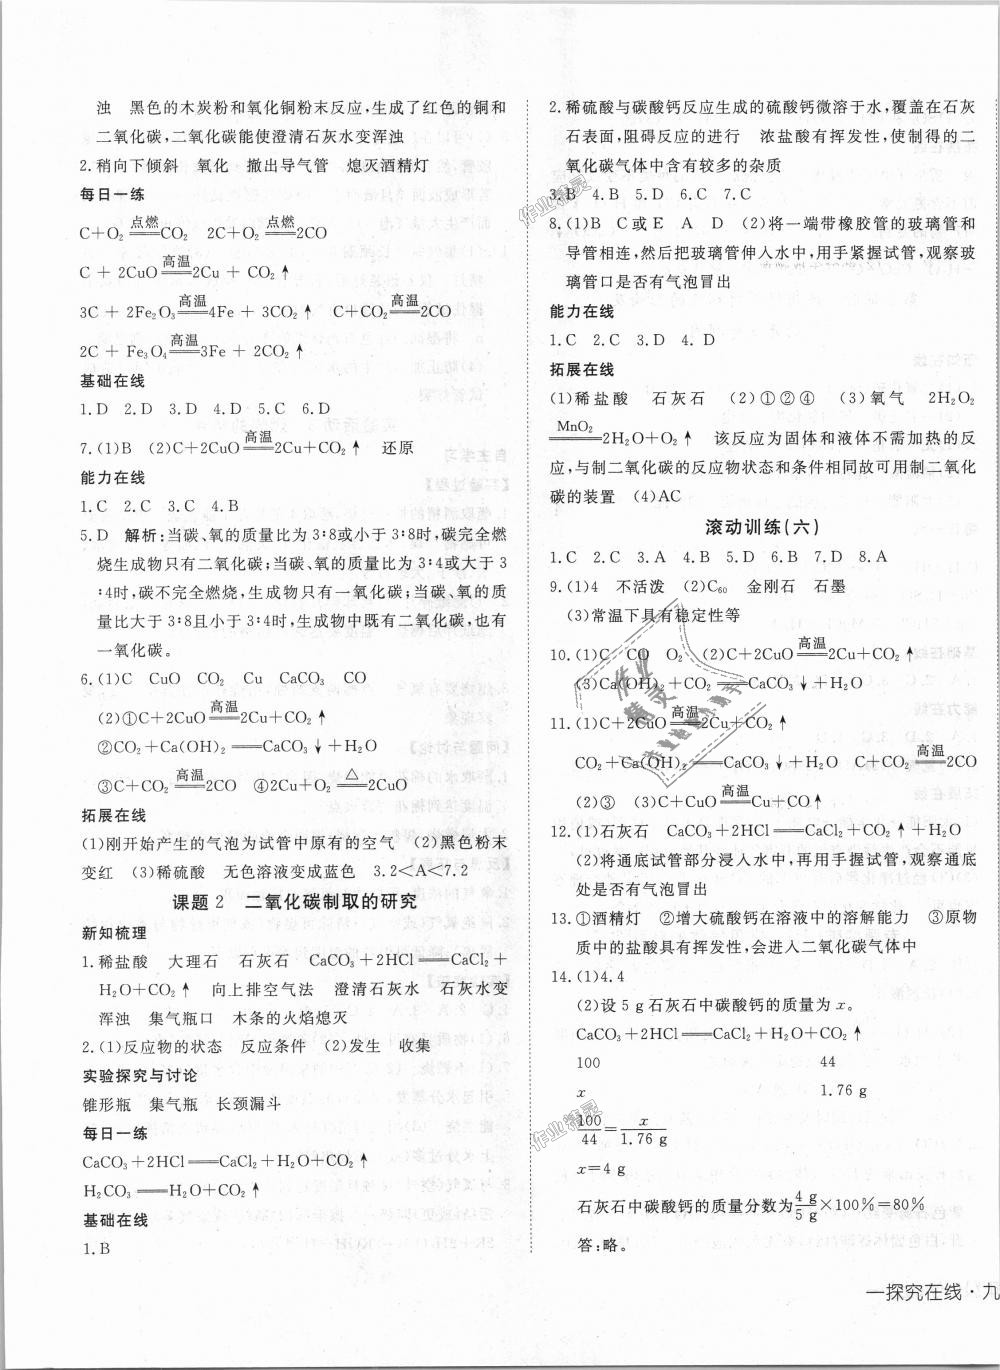 浊　黑色的木炭粉和氧化铜粉末反应,生成了红色的铜和
二氧化碳,二氧化碳能使澄清石灰水变浑浊
2.稍向下倾斜　氧化　撤出导气管　熄灭酒精灯
每日一练
C+O₂ =点燃= CO₂　2C+O₂ =点燃= 2CO
C + 2CuO =高温= 2Cu + CO₂↑
3C + 2Fe₂O₃ =高温= 4Fe + 3CO₂↑　C+CO₂ =高温= 2CO
2C + Fe₃O₄ =高温= 3Fe + 2CO₂↑
基础在线
1.D　2.D　3.D　4.D　5.C　6.D
7.(1)B　(2)C+2CuO =高温= 2Cu+CO₂↑　还原
能力在线
1.C　2.C　3.C　4.B
5.D　解析:当碳、氧的质量比为3∶8或小于3∶8时,碳完全燃
烧生成物只有二氧化碳;当碳、氧的质量比为3∶4或大于3
∶4时,碳不完全燃烧,生成物只有一氧化碳;当碳、氧的质
量比大于3∶8且小于3∶4时,生成物中既有二氧化碳,也有
一氧化碳。
6.(1)C　CuO　CO₂　Cu　CaCO₃　CO
(2)①C+2CuO =高温= 2Cu+CO₂↑
②CO₂+Ca(OH)₂ == CaCO₃↓+H₂O
③C+CO₂ =高温= 2CO　④2Cu+O₂ =△= 2CuO
拓展在线
(1)刚开始产生的气泡为试管中原有的空气　(2)黑色粉末
变红　(3)稀硫酸　无色溶液变成蓝色　3.2<A<7.2
课题2　二氧化碳制取的研究
新知梳理
1.稀盐酸　大理石　石灰石　CaCO₃+2HCl == CaCl₂+
H₂O+CO₂↑　向上排空气法　澄清石灰水　石灰水变
浑浊　集气瓶口　木条的火焰熄灭
2.(1)反应物的状态　反应条件　(2)发生　收集
实验探究与讨论
锥形瓶　集气瓶　长颈漏斗
每日一练
CaCO₃+2HCl == CaCl₂+H₂O+CO₂↑
H₂CO₃ == H₂O+CO₂↑
基础在线
1.B
2.稀硫酸与碳酸钙反应生成的硫酸钙微溶于水,覆盖在石灰
石表面,阻碍反应的进行　浓盐酸有挥发性,使制得的二
氧化碳气体中含有较多的杂质
3.B　4.B　5.D　6.C　7.C
8.(1)B　C或E　A　D　(2)将一端带橡胶管的玻璃管和
导管相连,然后把玻璃管伸入水中,用手紧握试管,观察玻
璃管口是否有气泡冒出
能力在线
1.C　2.C　3.D　4.D
拓展在线
(1)稀盐酸　石灰石　(2)①②④　(3)氧气　2H₂O₂
=MnO₂= 2H₂O+O₂↑　该反应为固体和液体不需加热的反
应,与制二氧化碳的反应物状态和条件相同故可用制二氧化
碳的装置　(4)AC
滚动训练(六)
1.C　2.C　3.A　4.B　5.D　6.B　7.D　8.A
9.(1)4　不活泼　(2)C₆₀　金刚石　石墨
(3)常温下具有稳定性等
10.(1)C　CO　O₂　(2)C+2CuO =高温= 2Cu+CO₂↑
(3)Ca(OH)₂+CO₂ == CaCO₃↓+H₂O
11.(1)C+2CuO =高温= 2Cu+CO₂↑
CO₂+Ca(OH)₂ == CaCO₃↓+H₂O　C+CO₂ =高温= 2CO
(2)③　(3)C+CuO =高温= Cu+CO↑
12.(1)石灰石　CaCO₃+2HCl == CaCl₂+CO₂↑+H₂O
(2)将通底试管部分浸入水中,再用手握试管,观察通底
处是否有气泡冒出
13.①酒精灯　②增大硫酸钙在溶液中的溶解能力　③原物
质中的盐酸具有挥发性,会进入二氧化碳气体中
14.(1)4.4
(2)设5 g石灰石中碳酸钙的质量为x。
CaCO₃+2HCl == CaCl₂+H₂O+CO₂↑
100　44
x　1.76 g
100/44 = x/1.76 g
x=4 g
石灰石中碳酸钙的质量分数为4 g/5 g×100%=80%
答:略。
一探究在线·九